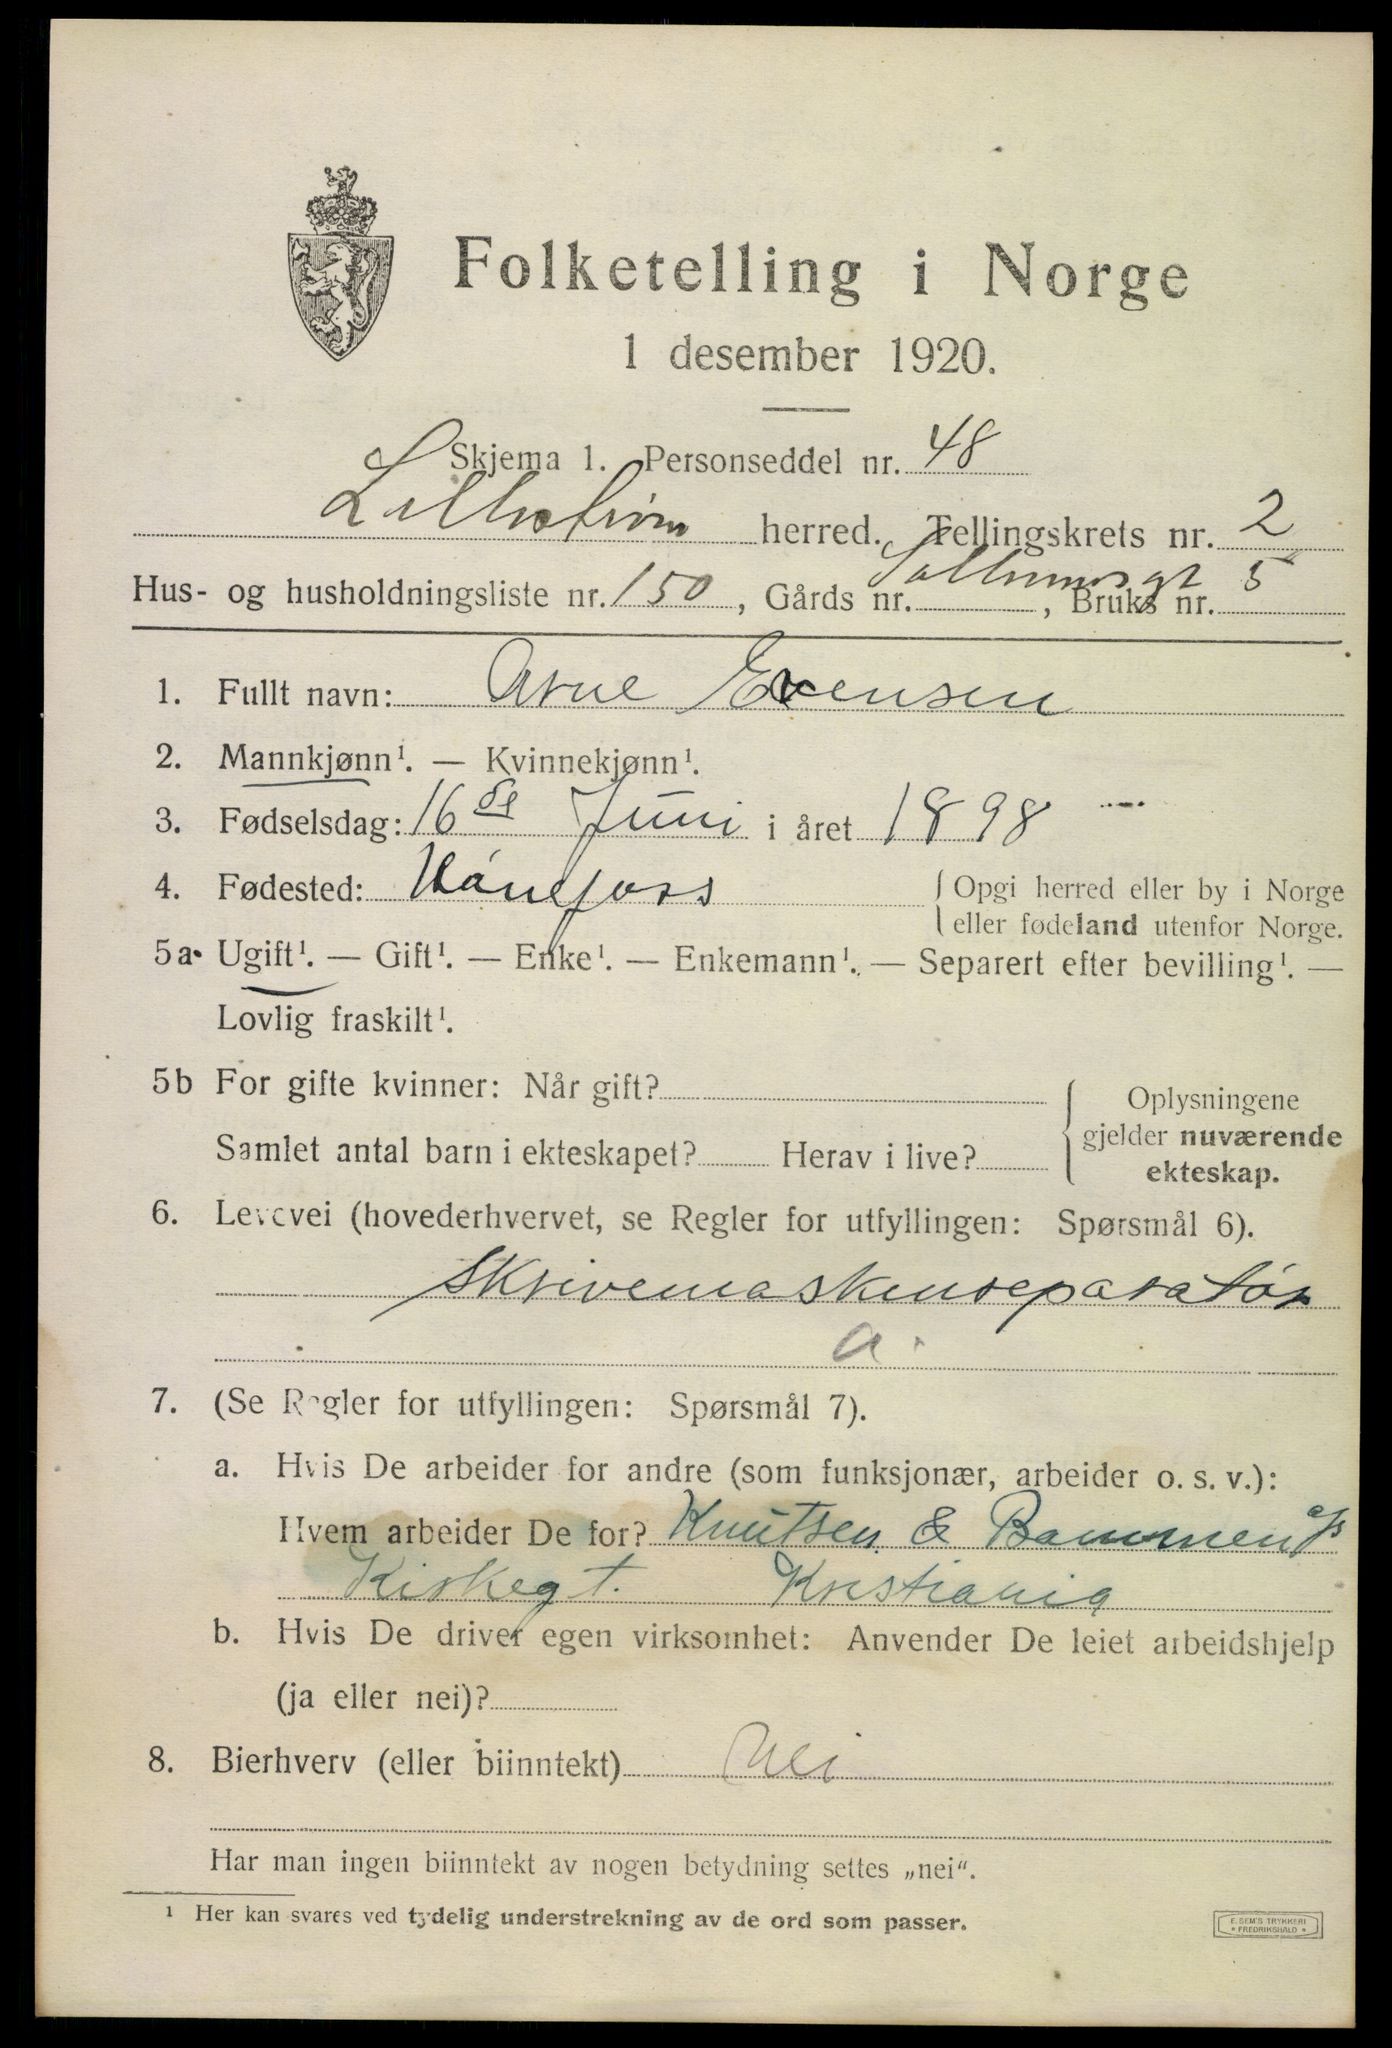 Folketelling i Norge
1 desember 1920.
Skjema 1. Personseddel nr. 48
Lillestrøm herred. Tellingskrets nr. 2
Hus- og husholdningsliste nr. 150, Gårds nr. , Bruks nr. 5
1. Fullt navn: Arne Evensen
2. Mannkjønn¹. — Kvinnekjønn¹.
3. Fødselsdag: 16de Juni i året 1898
4. Fødested: Hónefoss { Opgi herred eller by i Norge
eller fødeland utenfor Norge.
5a. Ugift¹. — Gift¹. — Enke¹. — Enkemann¹. — Separert efter bevilling¹. —
Lovlig fraskilt¹.
5b For gifte kvinner: Når gift? { Oplysningene
gjelder nuværende
ekteskap.
Samlet antal barn i ekteskapet? Herav i live?
6. Levevei (hovederhvervet, se Regler for utfyllingen: Spørsmål 6).
Skrivemaskinreparatør
a.
7. (Se Regler for utfyllingen: Spørsmål 7).
a. Hvis De arbeider for andre (som funksjonær, arbeider o. s. v.):
Hvem arbeider De for? Knutsen & Bammen a/s
Kirkegt. Kristiania
b. Hvis De driver egen virksomhet: Anvender De leiet arbeidshjelp
(ja eller nei)?
8. Bierhverv (eller biinntekt) Nei
Har man ingen biinntekt av nogen betydning settes „nei“.
¹ Her kan svares ved tydelig understrekning av de ord som passer.
E. SEM'S TRYKKERI
* FREDRIKSHALD *